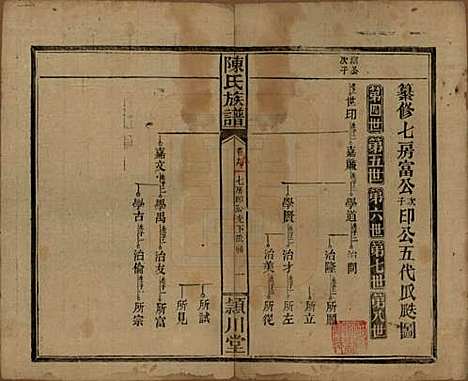 纂修七房富公次子印公五代瓜瓞圖
第四世 第五世 第六世 第七世 第八世
富公次子
世印
嘉謙
學道
治閏
治隆
所立
學閔
治才
所左
治美
所從
嘉文
學禹
治友
所試
所見
所富
學古
治倫
所宗
陳氏族譜
七房印公先下瓜圖
一
潁川堂